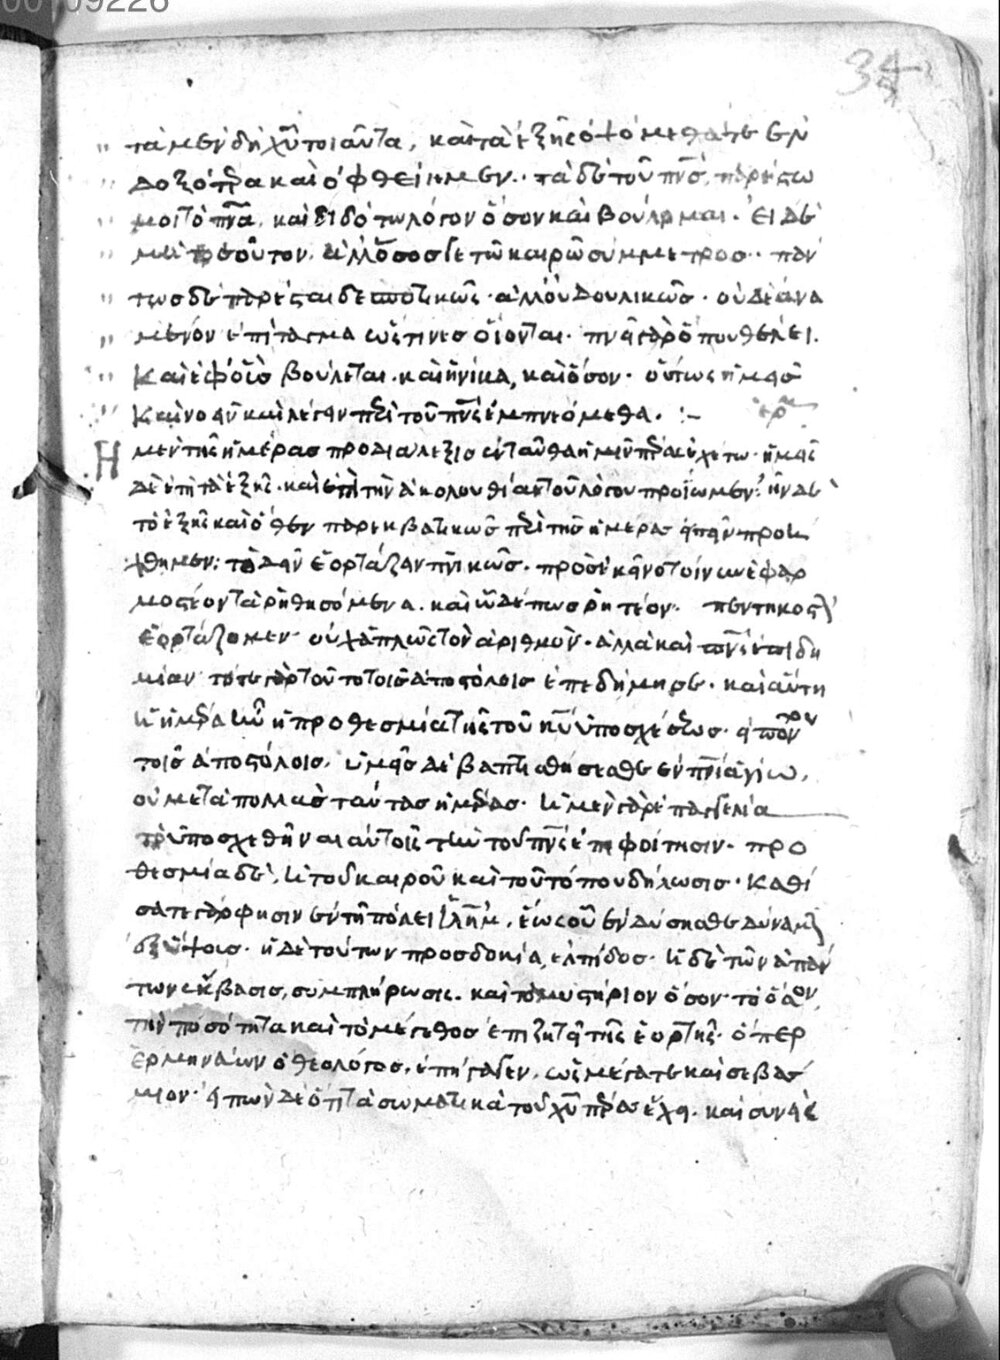 00109226
34
τὰ μὲν δὴ χῦ τοιαῦτα, καὶ τὰ ἑξῆς ὀψόμεθά τε ἐν
δοξότερα καὶ ὀφθείημεν·· τὰ δὲ τοῦ πνς, παρέστω
μοι τὸ πνα, καὶ διδότω λόγον ὅσον καὶ βούλομαι· εἰ δὲ
μὴ τοσοῦτον, ἀλλ' ὅσος γε τῶ καιρῶ σύμμετρος·· πάν
τως δὲ παρέσται δεσποτικῶς· ἀλλ' οὐ δουλικῶς· οὐδὲ ἀνα
μένον ἐπίταγμα ὥς τινες οἴονται· πνεῖ γὰρ ὅπου θέλει·
καὶ ἐφ' οὓς βούλεται· καὶ ἡνίκα, καὶ ὅσον· οὕτως ἡμεῖς
καὶ νοεῖν καὶ λέγειν περὶ τοῦ πνς ἐμπνεόμεθα· :-
Η μὲν τῆς ἡμέρας προδιάλεξις ἐνταῦθα ἡμῖν πέρας ἐχέτω· ἡμεῖς
δὲ ἐπὶ τὰ ἑξῆς· καὶ ἐπὶ τὴν ἀκολουθίαν τοῦ λόγου προΐωμεν·
τὸ ἑξῆς καὶ ὅθεν παρεκβατικῶς περὶ τῆς ἡμέρας εἰπεῖν προή
χθημεν: τὸ δεῖν ἑορτάζειν πνικῶς· πρὸς ἐκεῖνο τοίνυν ἐφαρ
μοστέον τὰ ῥηθησόμενα· καὶ ὧδέ πως ῥητέον· πεντηκοστὴν
ἑορτάζομεν· οὐχ ἁπλῶς τὸν ἀριθμὸν· ἀλλὰ καὶ πνς ἐπιδη
μίαν· τότε γὰρ τοῦτο τοῖς ἀποστόλοις ἐπεδήμησε· καὶ αὕτη
ἡ ἡμέρα ἦν ἡ προθεσμία τῆς τοῦ κῦ ὑποσχέσεως· εἰπόντος
τοῖς ἀποστόλοις, ὑμεῖς δὲ βαπτισθήσεσθε ἐν πνι ἁγίω,
οὐ μετὰ πολλὰς ταύτας ἡμέρας· ἡ μὲν γὰρ ἐπαγγελία
τὸ ὑποσχεθῆναι αὐτοῖς τὴν τοῦ πνς ἐπιφοίτησιν· προ
θεσμία δὲ, ἡ τοῦ καιροῦ καὶ τοῦ τόπου δήλωσις· καθί
σατε γάρ φησιν ἐν τῆ πόλει ιλημ, ἕως οὗ ἐνδύσησθε δύναμιν
ἐξ ὕψους· ἡ δὲ τούτων προσδοκία, ἐλπίδος· ἡ δὲ τῶν ἁπάν
των ἔκβασις, συμπλήρωσις· καὶ τὸ μυστήριον ὅσον· τὸ ὅσον
τὴν ποσότητα καὶ τὸ μέγεθος ἐπιζητεῖ τῆς ἑορτῆς· ὅπερ
ἑρμηνεύων ὁ θεολόγος, ἐπήγαγεν, ὡς μέγα τε καὶ σεβάσ
μιον· εἰπὼν δὲ ὅτι τὰ σωματικὰ τοῦ χῦ πέρας ἔχει· καὶ συνῆψε